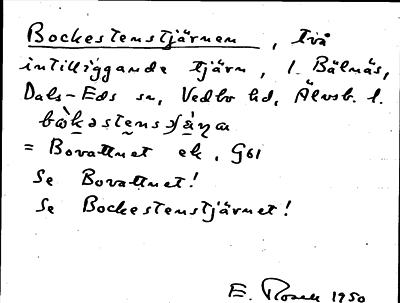 Bockestenstjärnen, två
intilliggande tjärn, l. Bälnäs,
Dals-Eds sn, Vedbo hd, Älvsb. l.
= Bovattnet ek, G61
Se Bovattnet!
Se Bockestenstjärnet!
E. Rosell 1950